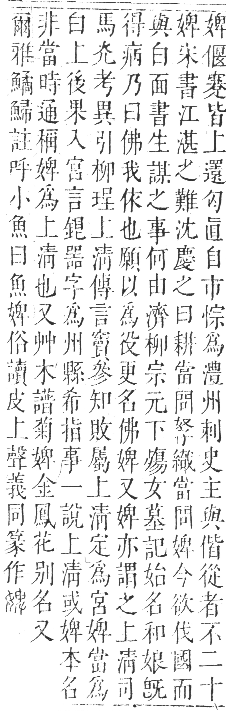 婢偃蹇皆上還勾眞自市悰為澧州刺史主與偕從者不二十
婢宋書江湛之難沈慶之曰耕當問孥織當問婢今欲伐國而
與白面書生謀之事何由濟柳宗元下殤女墓記始名和娘旣
得病乃曰佛我依也願以為役更名佛婢又婢亦謂之上淸司
馬光考異引柳珵上淸傳言竇參知敗屬上淸定為宮婢當為
白上後果入宮言銀器字為州縣希指事一說上淸或婢本名
非當時通稱婢為上淸也又艸木譜菊婢金鳳花别名又
爾雅鱊鯞註呼小魚曰魚婢俗讀皮上聲義同篆作